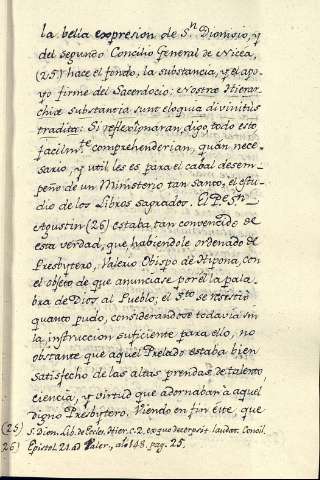 la bella expresion de S.n Dionisio, y
del segundo Concilio General de Nicea,
(25) hace el fondo, la substancia, y el apo-
yo firme del Sacerdocio: Nostræ Hierar-
chiæ substantia sunt eloquia divinitus
tradita: Si reflexionaran, digo, todo esto
facilm.te comprehenderian, quan nece-
sario, y util les es para el cabal desem-
peño de un Ministerio tan Santo, el estu-
dio de los Libros Sagrados. El P. S.n
Agustin (26) estaba tan convencido de
esta verdad, que habiendole ordenado de
Presbytero, Valerio Obispo de Hipona, con
el objeto de que anunciase por él la pala-
bra de Dios al Pueblo; el S.to se resistió
quanto pudo, considerandose todavia sin
la instruccion suficiente para ello, no
obstante que aquel Prelado estaba bien
satisfecho de las altas prendas de talento,
ciencia, y virtud que adornaban à aquel
digno Presbytero. Viendo en fin este, que
(25) S. Dion. Lib. de Eccles. Hier. c. 2. ex quo decerpsit laudat. Concil.
26) Epistol. 21. ad Valer., al. 148. pag. 25.